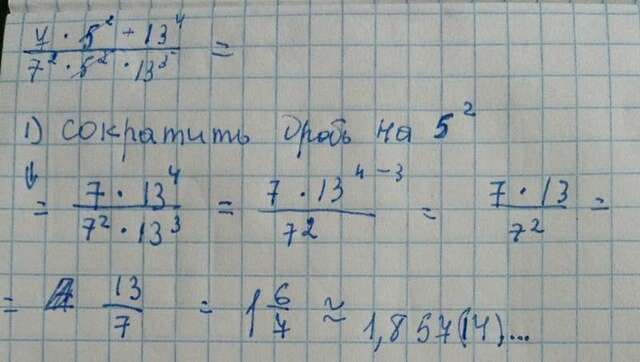 7 · 5² · 13⁴ / 7² · 5² · 13³ =
1) сократить дробь на 5²
= 7 · 13⁴ / 7² · 13³ = 7 · 13⁴⁻³ / 7² = 7 · 13 / 7² =
= 13 / 7 = 1 6/7 ≈ 1,857(14)...